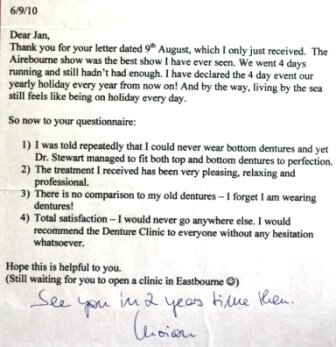 6/9/10
Dear Jan,
Thank you for your letter dated 9th August, which I only just received. The
Airebourne show was the best show I have ever seen. We went 4 days
running and still hadn't had enough. I have declared the 4 day event our
yearly holiday every year from now on! And by the way, living by the sea
still feels like being on holiday every day.
So now to your questionnaire:
1) I was told repeatedly that I could never wear bottom dentures and yet
Dr. Stewart managed to fit both top and bottom dentures to perfection.
2) The treatment I received has been very pleasing, relaxing and
professional.
3) There is no comparison to my old dentures – I forget I am wearing
dentures!
4) Total satisfaction – I would never go anywhere else. I would
recommend the Denture Clinic to everyone without any hesitation
whatsoever.
Hope this is helpful to you.
(Still waiting for you to open a clinic in Eastbourne ☺)
See you in 2 years time then.